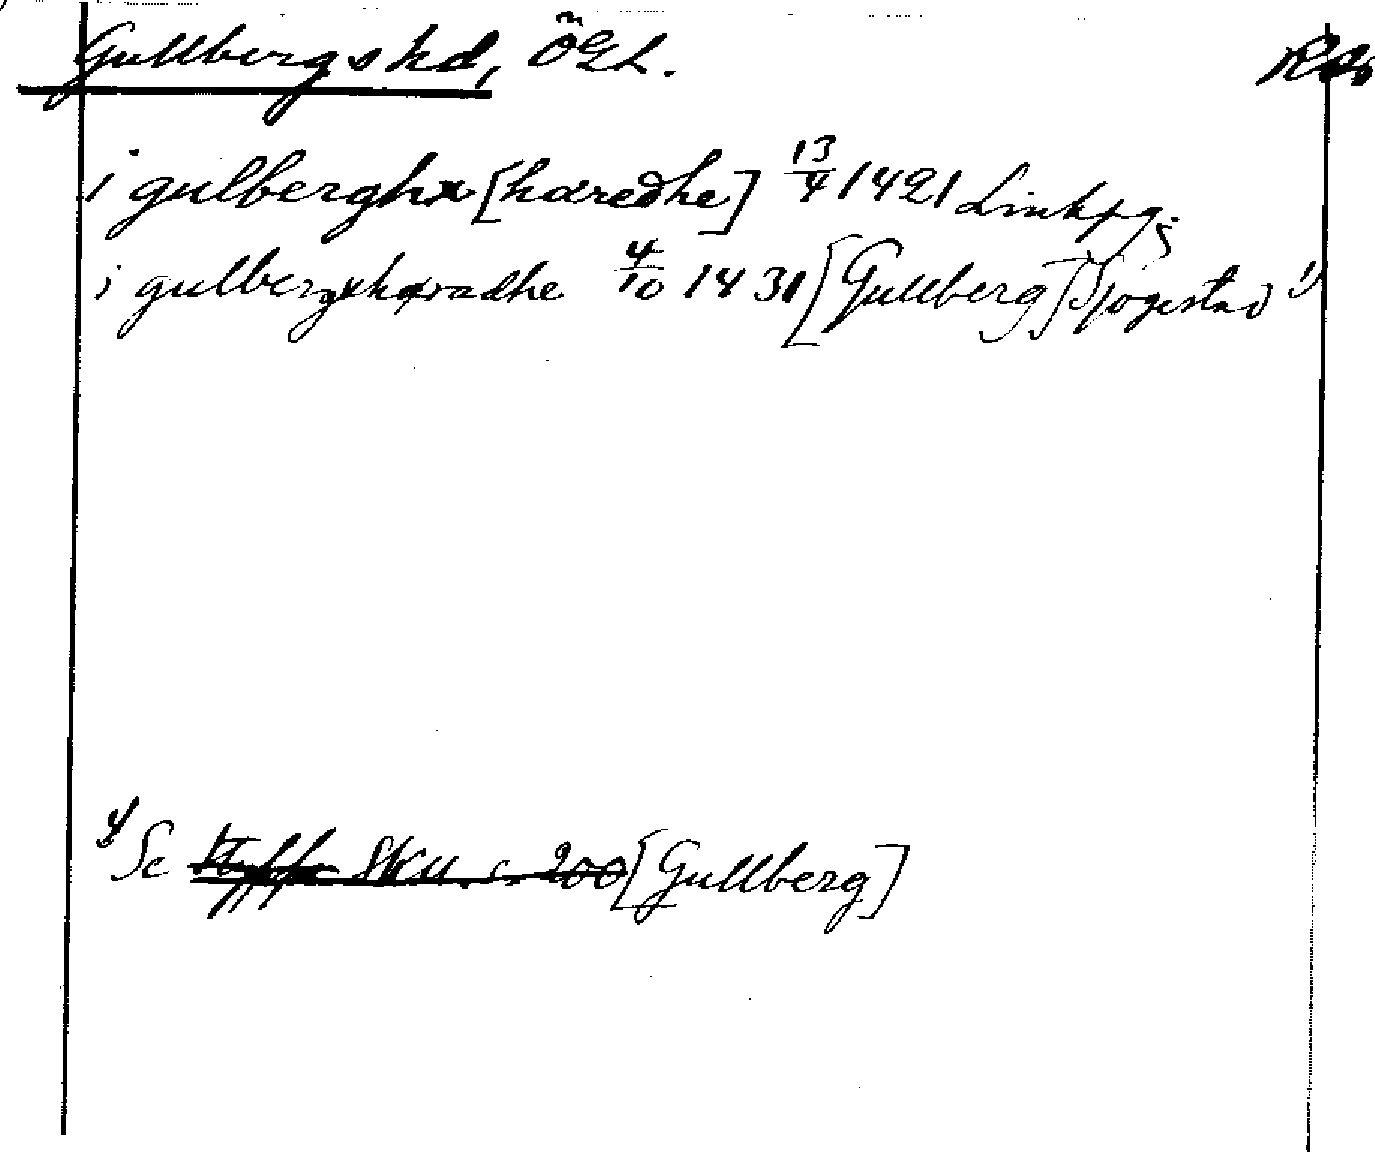 Gullbergs hd, ÖGL. RAp
i gulberghx [hæredhe] 13/4 1421 Linkpg;
i gulbergxhæradhe 4/10 1431 [Gullberg] Sjögestad 1)
1) Se Styffe SKU s. 200 [Gullberg]